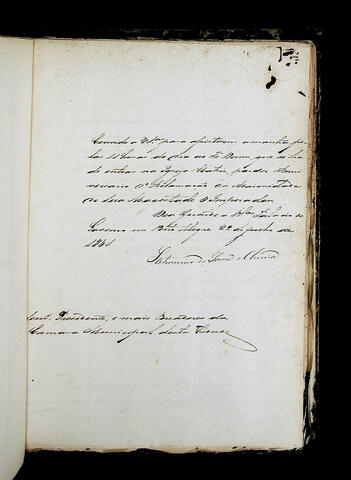 Convido a V.Sas para assistirem amanhã pe-
las 11 horas do dia ao Te Deum, que se ha
de entoar na Igreja Matriz, por ser Anni
versario d'Acclamação da Maioridade
de Sua Magestade o Imperador.
Deos Guarde a V.Sas Palacio do
Governo em Porto Alegre 22 de julho de
1841
Saturnino de Souza e Oliveira
Presidente, e mais Vereadores da
Camara Municipal desta Cidade